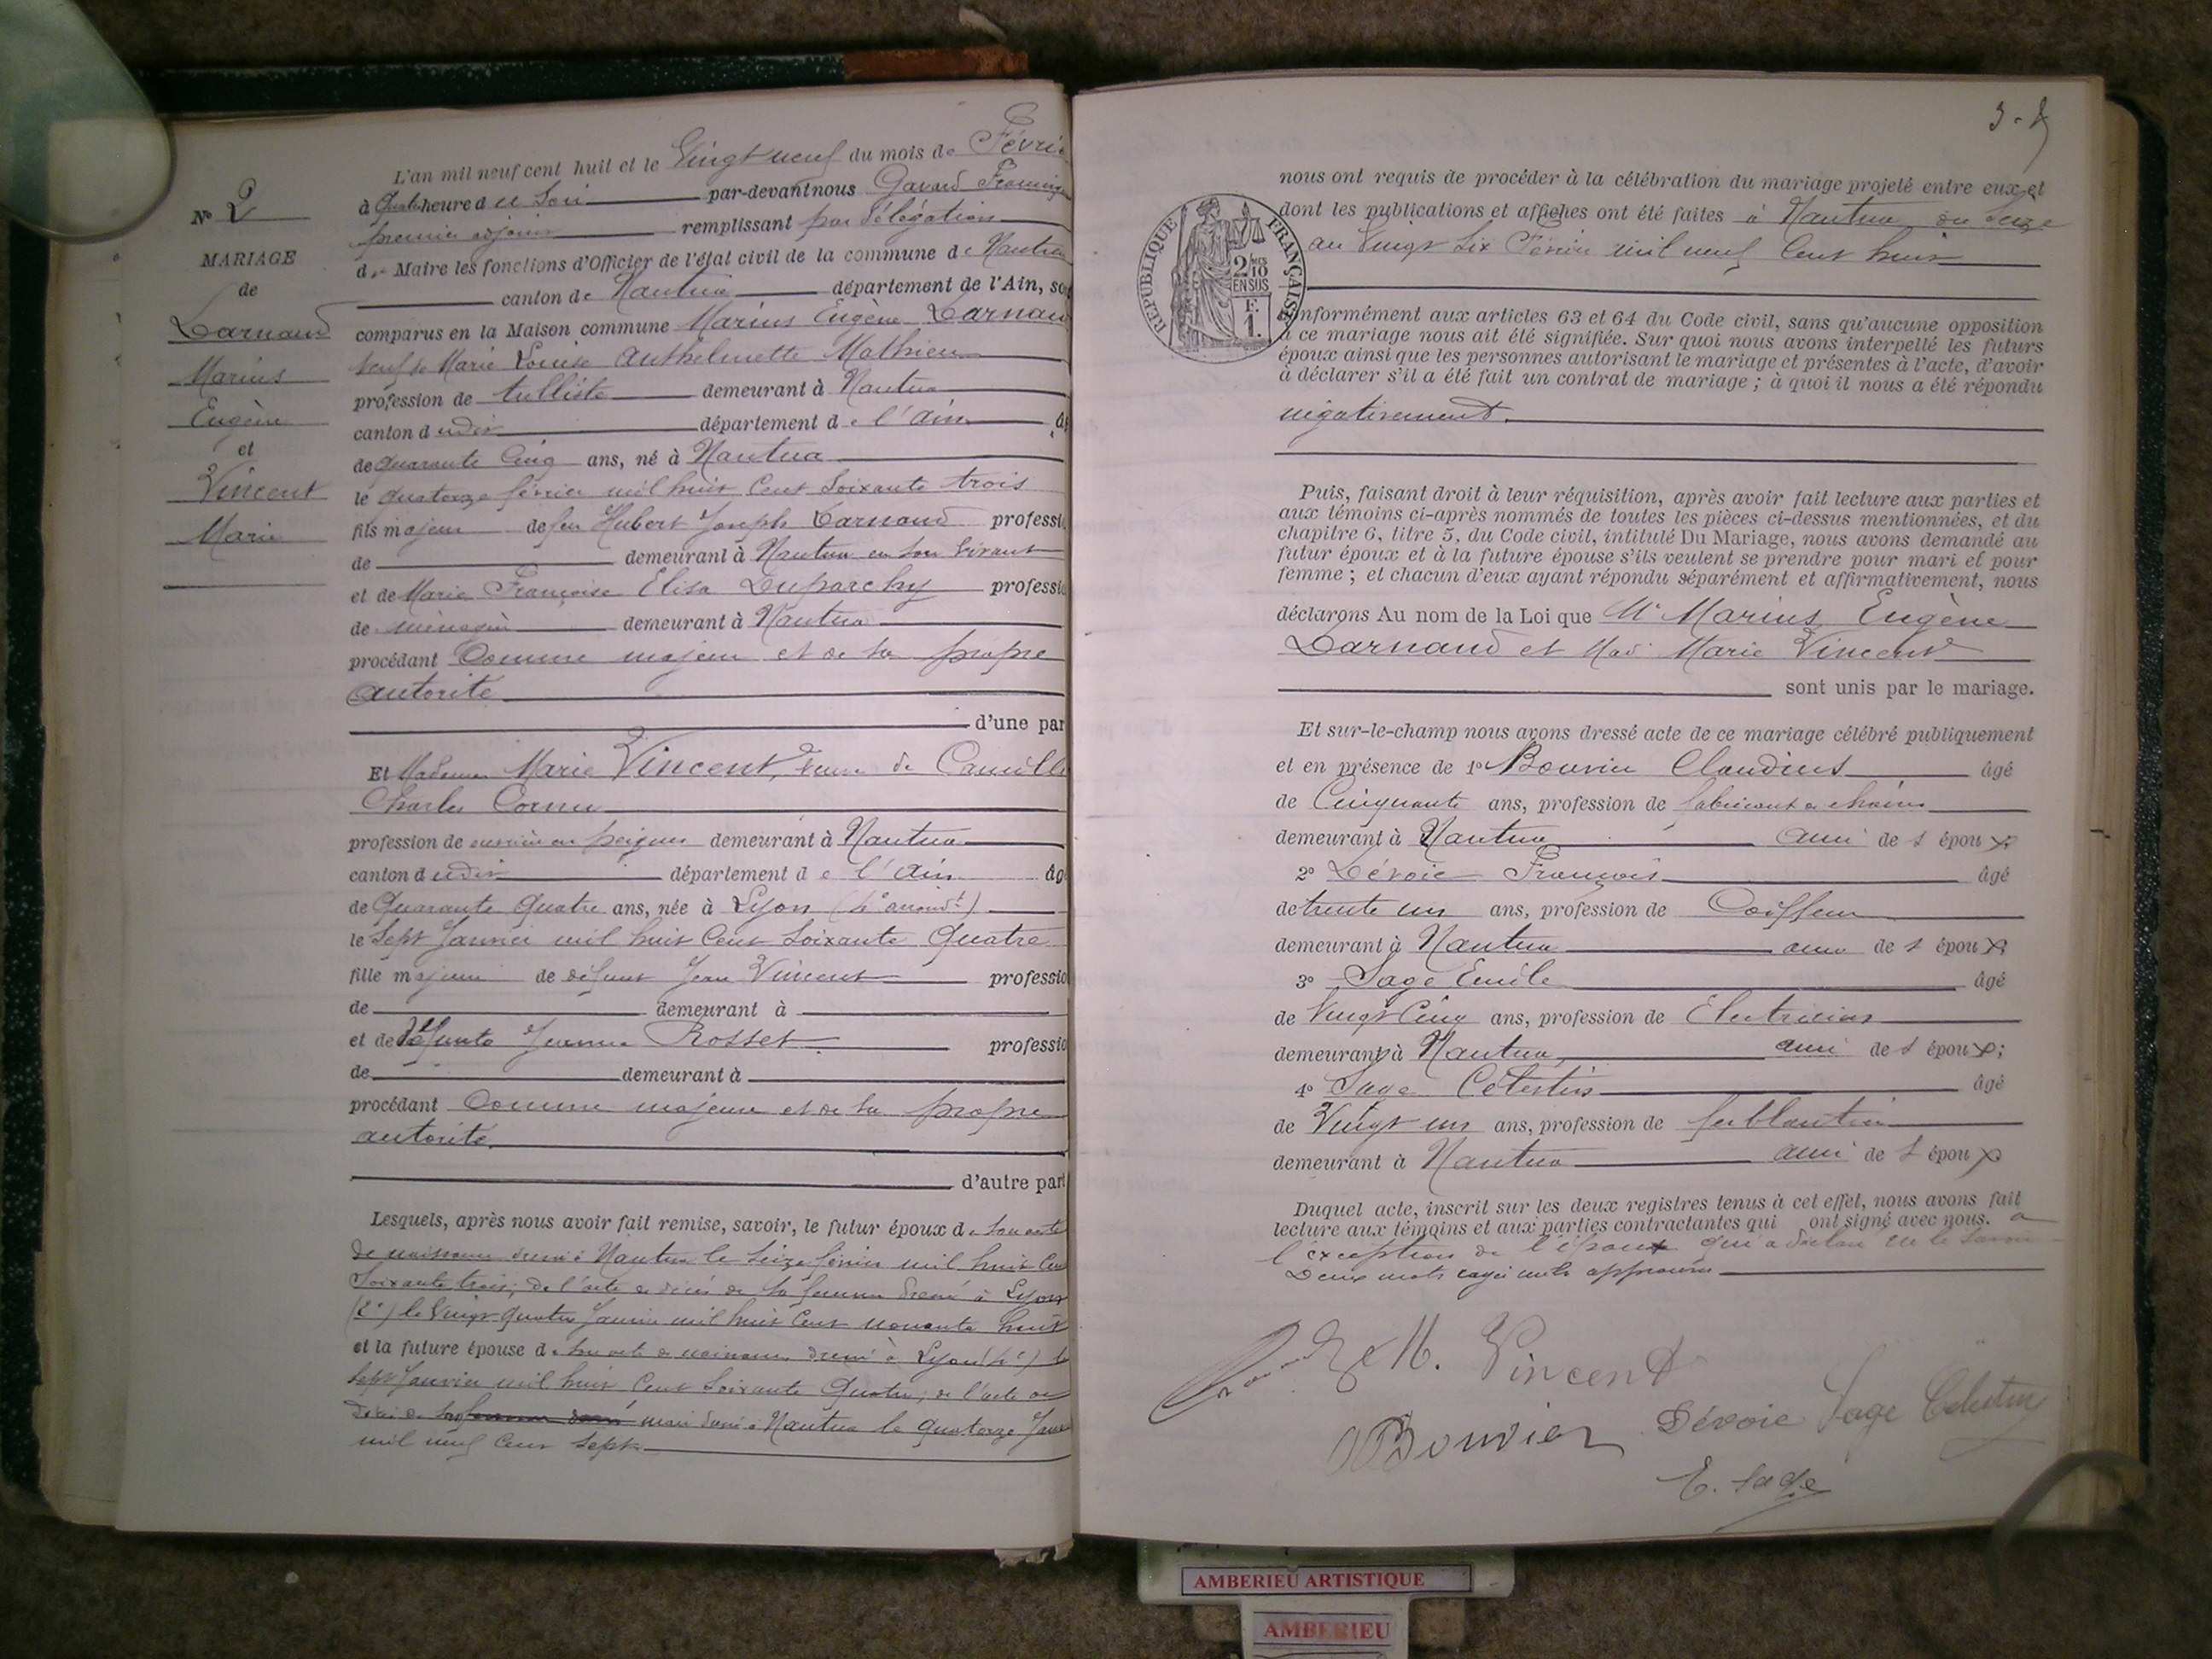 L'an mil neuf cent huit et le Vingt neuf du mois de Févrie
à Quatre heure du Soir par-devant nous Gavard
premier adjoint remplissant par délégation
d. Maire les fonctions d'Officier de l'état civil de la commune de Nantua
canton de Nantua département de l'Ain, so
comparus en la Maison commune Marius Eugène Darnau
Veuf de Marie Louise Anthelmette Mathieu
profession de tulliste demeurant à Nantua
canton dudit département de l'Ain
de quarante Cinq ans, né à Nantua
le quatorze février mil huit Cent Soixante trois
fils majeur de feu Hubert Joseph Darnaud professi
de demeurant à Nantua en son vivant
et de Marie Françoise Elisa Duparchy professi
de ménagère demeurant à Nantua
procédant Comme majeur et de sa propre
autorité
d'une par
Nº 2
MARIAGE
de
Darnaud
Marius
Eugène
et
Vincent
Marie
Et Madame Marie Vincent, veuve de Camille
Charles Cornu
profession de ouvrière en peignes demeurant à Nantua
canton dudit département de l'Ain âg
de Quarante Quatre ans, née à Lyon
le Sept Janvier mil huit Cent Soixante Quatre
fille majeure de défunt Jean Vincent professio
de demeurant à
et de défunte Jeanne Rosset professio
de demeurant à
procédant Comme majeure et de sa propre
autorité.
d'autre part
Lesquels, après nous avoir fait remise, savoir, le futur époux de son acte
de naissance dressé à Nantua le Seize février mil huit Cen
Soixante trois; de l'acte de décès de sa femme dressé à Lyon
(2e) le Vingt Quatre Janvier mil huit Cent nonante huit
et la future épouse de son acte de naissance dressé à Lyon le
Sept Janvier mil huit Cent Soixante Quatre; de l'acte de
décès de son mari dressé à Nantua le Quatorze
mil neuf Cent Sept
nous ont requis de procéder à la célébration du mariage projeté entre eux et
dont les publications et affiches ont été faites à Nantua du Seize
au Vingt Six Février mil neuf Cent huit
RÉPUBLIQUE FRANÇAISE
2/10
EN SUS
F.
1.
conformément aux articles 63 et 64 du Code civil, sans qu'aucune opposition
à ce mariage nous ait été signifiée. Sur quoi nous avons interpellé les futurs
époux ainsi que les personnes autorisant le mariage et présentes à l'acte, d'avoir
à déclarer s'il a été fait un contrat de mariage ; à quoi il nous a été répondu
négativement.
Puis, faisant droit à leur réquisition, après avoir fait lecture aux parties et
aux témoins ci-après nommés de toutes les pièces ci-dessus mentionnées, et du
chapitre 6, titre 5, du Code civil, intitulé Du Mariage, nous avons demandé au
futur époux et à la future épouse s'ils veulent se prendre pour mari et pour
femme ; et chacun d'eux ayant répondu séparément et affirmativement, nous
déclarons Au nom de la Loi que Mr Marius Eugène
Darnaud et Mad. Marie Vincent
sont unis par le mariage.
Et sur-le-champ nous avons dressé acte de ce mariage célébré publiquement
et en présence de 1º Bouvier Claudius âgé
de Cinquante ans, profession de fabricant de chaises
demeurant à Nantua ami de l'époux
2º Dévoie François âgé
de trente un ans, profession de Coiffeur
demeurant à Nantua ami de l'époux
3º Sage Emile âgé
de Vingt Cinq ans, profession de Electricien
demeurant à Nantua ami de l'époux;
4º Sage Célestin âgé
de Vingt un ans, profession de ferblantier
demeurant à Nantua ami de l'époux
Duquel acte, inscrit sur les deux registres tenus à cet effet, nous avons fait
lecture aux témoins et aux parties contractantes qui ont signé avec nous. à
l'exception de l'époux qui a déclaré ne le savoir
Deux mots rayés nuls approuvés
M. Vincent
Bouvier Dévoie Sage Célestin
E. Sage
AMBERIEU ARTISTIQUE
AMBERIEU